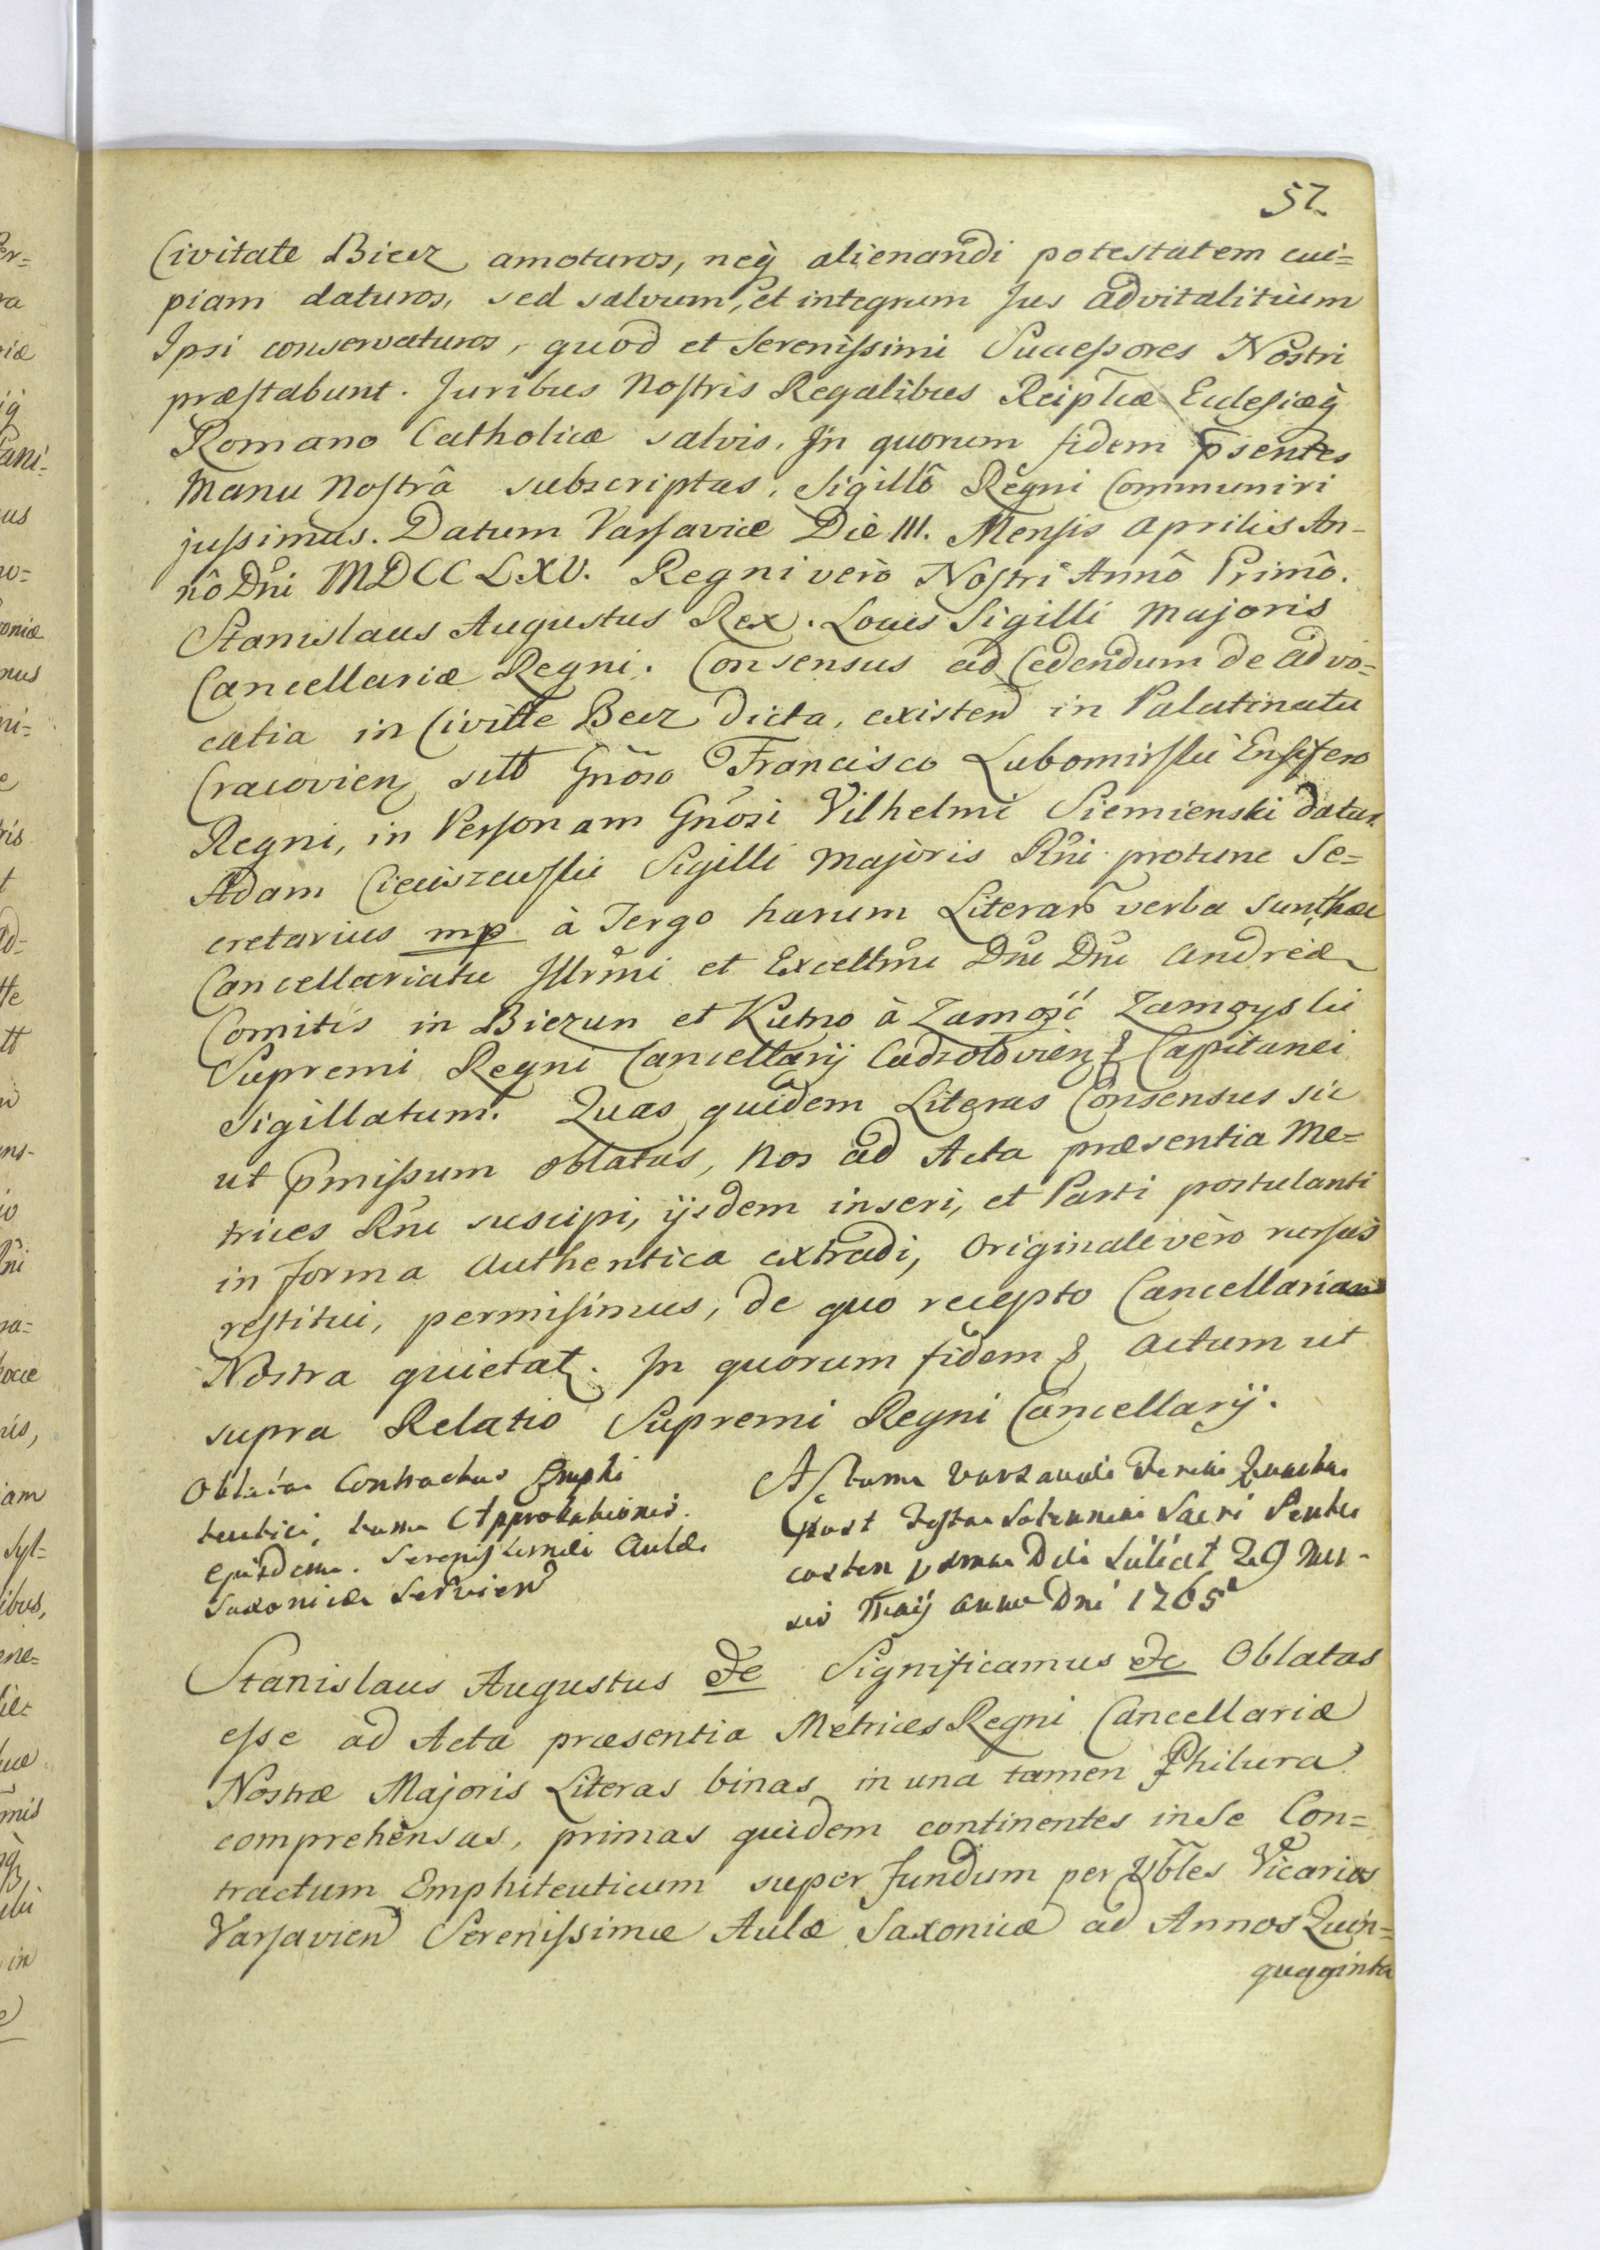 57
Civitate Biecz amoturos, neq̀ alienandi potestatem cui=
piam daturos, sed salvum, et integrum Jus advitalitium
Ipsi conservaturos, quod et Serenissimi Successores Nostri
præstabunt. Juribus Nostris Regalibus Reiplicæ Eclesiæq̀
Romano Catholicæ salvis. In quorum fidem p̄sentes
Manu Nostrâ subscriptas, Sigillô Regni Communiri
jussimus. Datum Varsaviæ Die III. Mensis Aprilis An-
nô Dni MDCCLXV. Regni verò Nostri Annô Primô.
Stanislaus Augustus Rex. Locus Sigilli Majoris
Cancellariæ Regni. Consensus ad Cedendum de advo=
catia in Civitte Becz dicta, existen in Palatinatu
Cracovien sitt Gnoso Francisco Lubomirski Ensifero
Regni, in Personam Gnosi Vilhelmi Siemienski datus
Adam Cieciszewski Sigilli Majoris Rni protunc Se=
cretarius mp à Tergo harum Literar verba sunt hæc
Cancellariatu Illrmi et Excellmi Dni Dni Andreæ
Comitis in Biezun et Kutno à Zamość Zamoyski
Supremi Regni Cancellarij Capitanei
Sigillatum. Quas quidem Literas Consensus sic
ut p̄missum oblatas, Nos ad Acta præsentia Me=
trices Rni suscipi, ijsdem inseri, et Parti postulanti
in forma authentica extradi, Originale vèro rursus
restitui, permisimus, de quo recepto Cancellariam
Nostra quietat. In quorum fidem & Actum ut
supra Relatio Supremi Regni Cancellarij.
Oblata Contractus Emphi
teutici, tum Approbationis
ejusdem. Serenissimæ Aulæ
Saxonicæ Servien
Actum Varsaviæ Feria Quarta
post Festa Solennia Sacri Pente
costen prima Die Sciliċet 29 Men-
sis Maij anno Dni 1765
Stanislaus Augustus &c Significamus &c Oblatas
esse ad Acta præsentia Metrices Regni Cancellariæ
Nostræ Majoris Literas binas in una tamen Philura
comprehensas, primas quidem continentes in Se Con=
tractum Emphiteuticum super fundum per Vbles Vicarios
Varsavien Serenissimæ Aulæ Saxonicæ ad Annos Quin=
quaginta